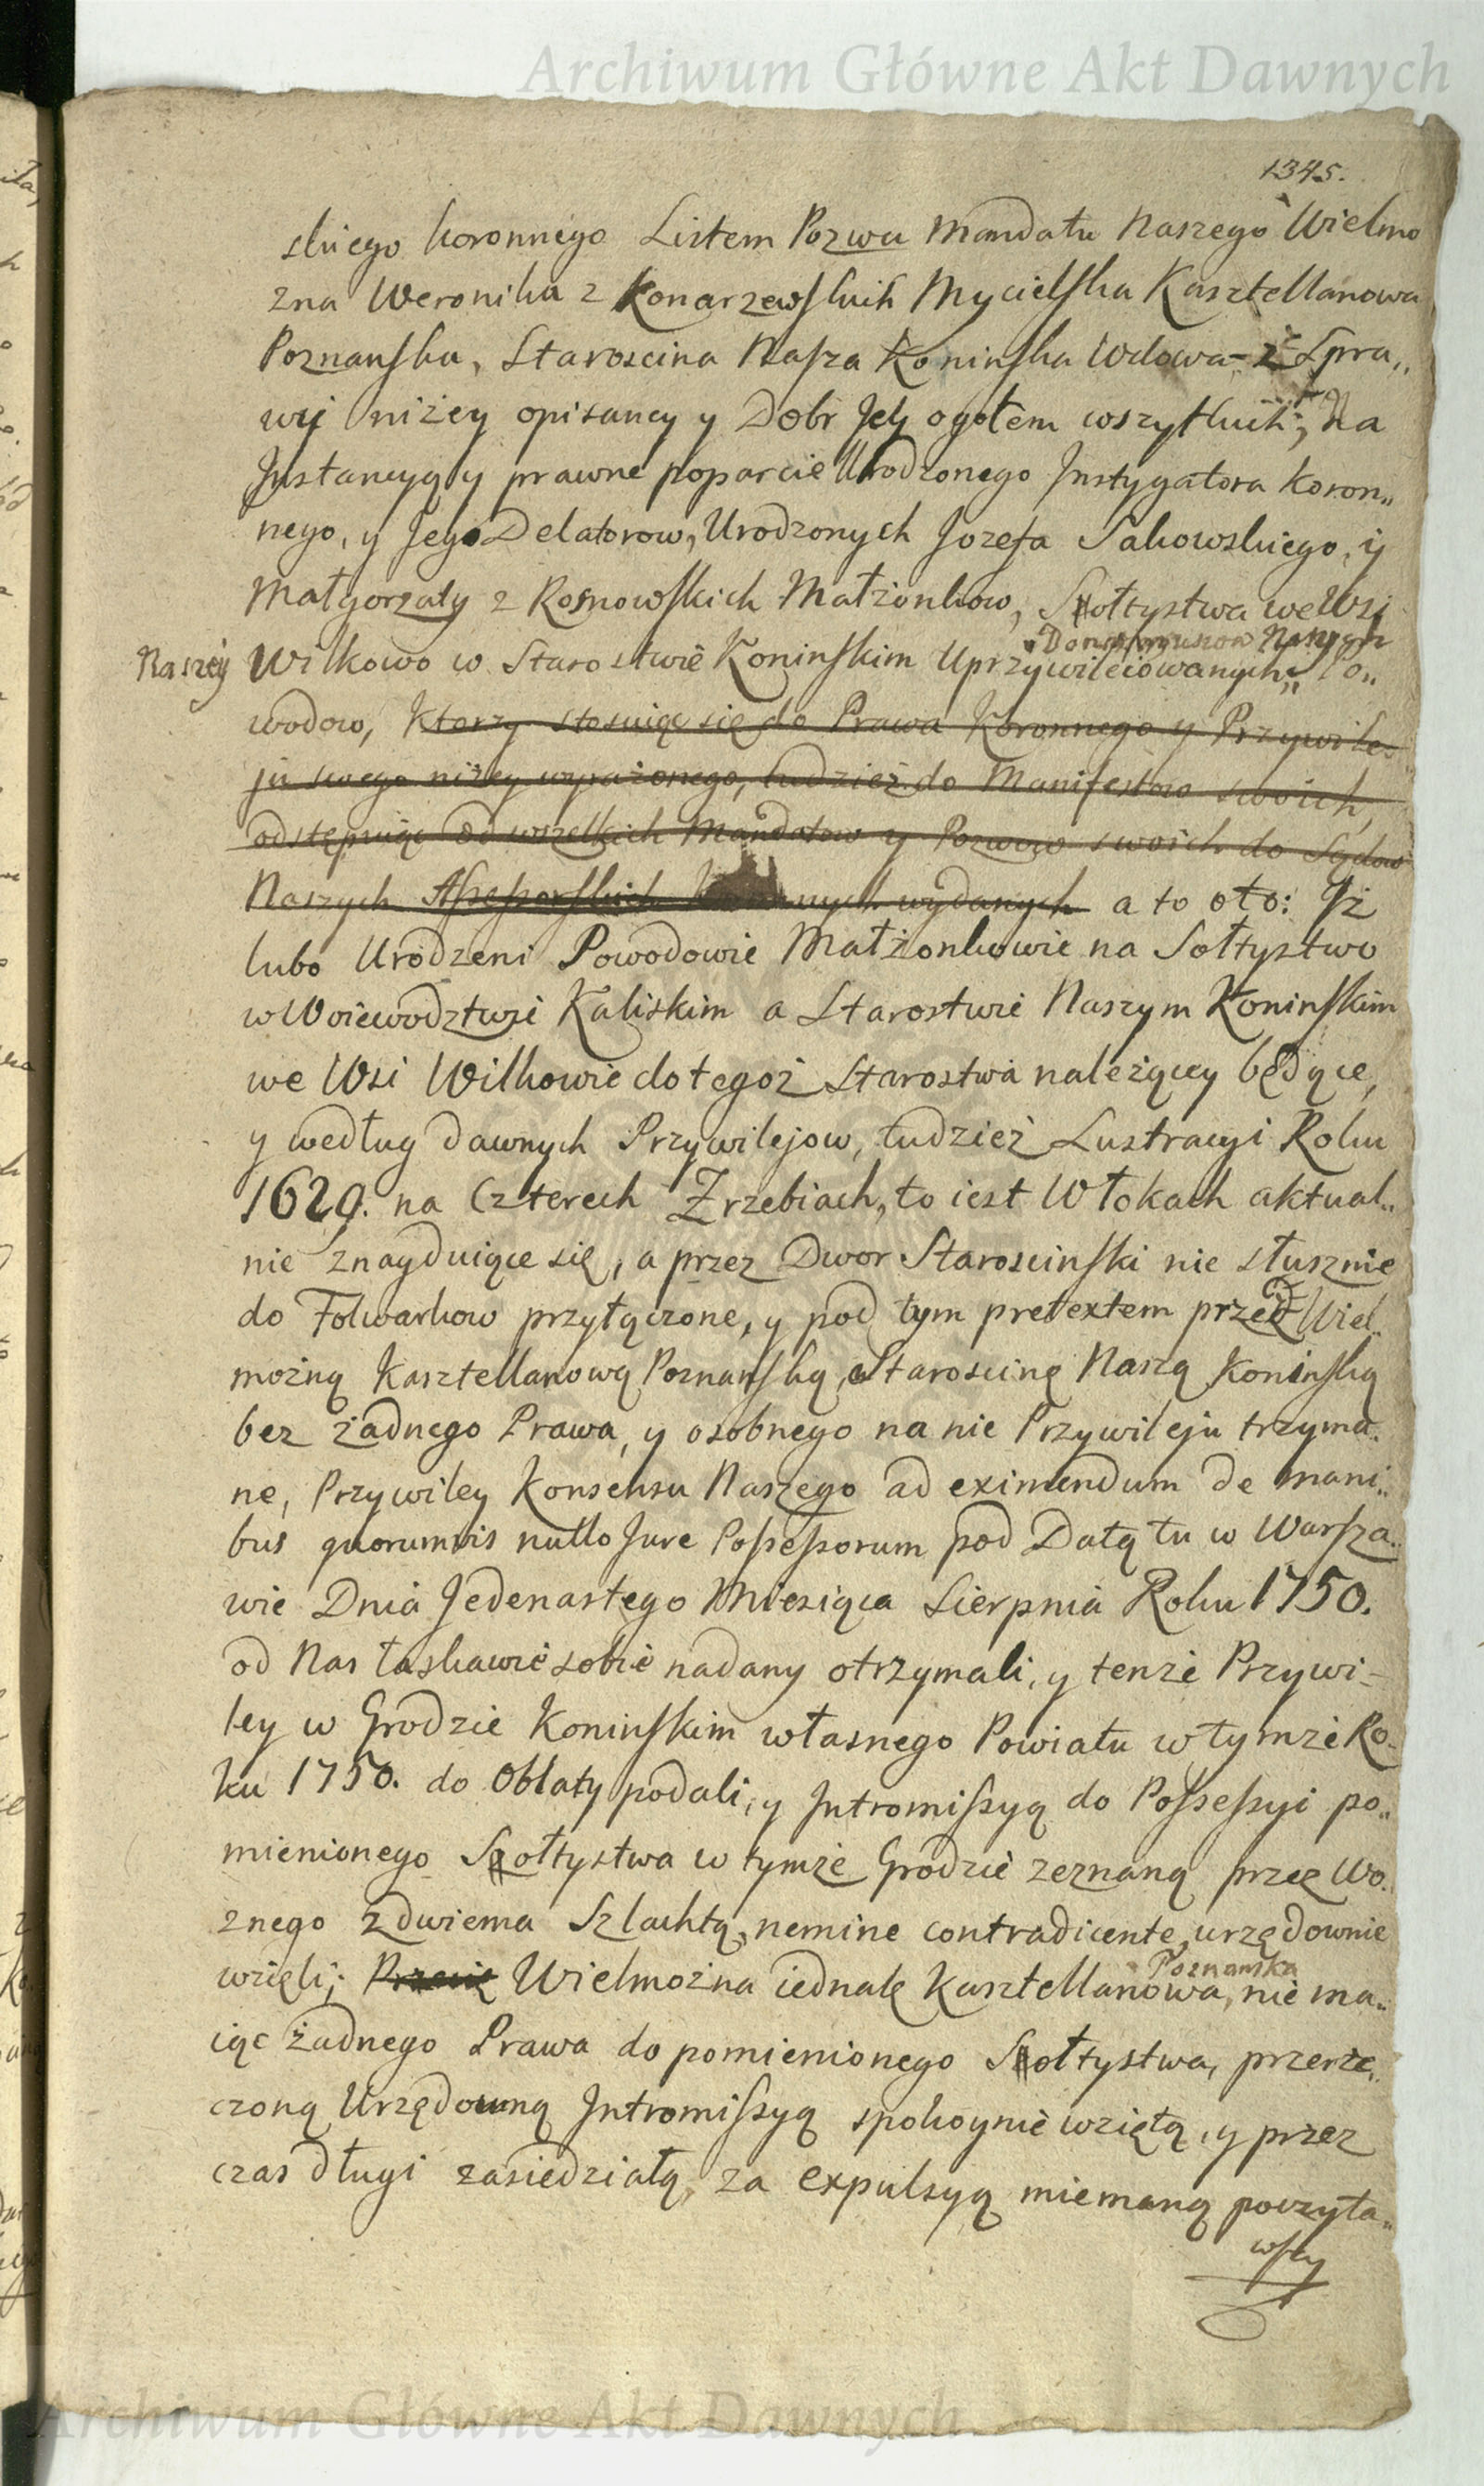 Archiwum Główne Akt Dawnych
1345.
skiego koronnego Listem Pozwu Mandatu Naszego Wielmo
zna Weronika z Konarzewskich Mycielska Kasztellanowa
Poznanska, Staroscina Nasza Koninska Wdowa z Spra„
wy niżey opisaney y Dobr Jey ogołem wszytkich, Na
Instancyą y prawne poparcie Urodzonego Instygatora Koron„
nego, y Jego Delatorow, Urodzonych Jozefa Sakowskiego, y
Małgorzaty z Rosnowskich Małżonkow, Sołtystwa we Wsi
Naszey Wilkowo w Starostwie Koninskim Uprzywileiowanych, Po„
wodow, Ktorzy stosuiąc się do Prawa Koronnego y Przywile
ju swego niżey wyrażonego, tudzież do Manifestow swoich,
odstępuiąc od wszelkich Mandatow y Pozwow swoich do Sądow
Naszych Assessorskich wydanych a to oto: Iż
lubo Urodzeni Powodowie Małżonkowie na Sołtystwo
w Woiewodztwie Kaliskim a Starostwie Naszym Koninskim
we Wsi Wilkowie do tegoż Starostwa należący będące,
y według dawnych Przywilejow, tudzież Lustracyi Roku
1629. na Czterech Zrzebiach, to iest Włokach aktual„
nie znayduiące się, a przez Dwor Starościnski nie słusznie
do Folwarkow przyłączone, y pod tym pretextem przez Wiel„
możną Kasztellanową Poznanską, Starościnę Naszą Koninską
bez żadnego Prawa, y osobnego na nie Przywileju trzyma„
ne, Przywiley Konsensu Naszego ad eximendum de mani„
bus quorumvis nullo Jure Possessorum pod Datą tu w Warsza„
wie Dnia Jedenastego Miesiąca Sierpnia Roku 1750.
od Nas łaskawie sobie nadany otrzymali, y tenże Przywi-
ley w Grodzie Koninskim własnego Powiatu w tymże Ro-
ku 1750. do Oblaty podali, y Intromissyą do Possessyi po„
mienionego Sołtystwa w tymże Grodzie zeznaną przez Wo„
znego z dwiema Szlachtą, nemine contradicente, urzędownie
wzięli; Wielmożna iednak Kasztellanowa Poznanska, nie ma„
iąc żadnego Prawa do pomienionego Sołtystwa, przerze„
czoną Urzędowną Intromissyą spokoynie wziętą, y przez
czas długi zasiedziałą, za expulsyą mniemaną poczyta„
wszy
Archiwum Główne Akt Dawnych